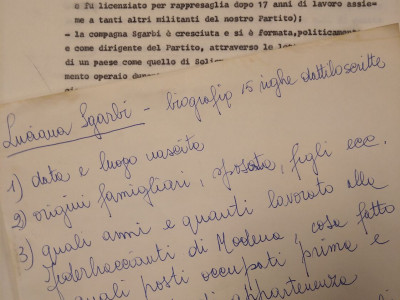 e fu licenziato per rappresaglia dopo 17 anni di lavoro assie-
me a tanti altri militanti del nostro Partito);
- la compagna Sgarbi è cresciuta e si è formata, politicamente
e come dirigente del Partito, attraverso le
di un paese come quello di
mento operaio
Luciana Sgarbi - biografia 15 righe dattiloscritte
1) data e luogo nascita
2) origini famigliari, sposata, figli ecc.
3) quali anni e quanti lavorato alla
Federbraccianti di Modena, cosa fatto
quali posti occupati prima e
di appartenenza